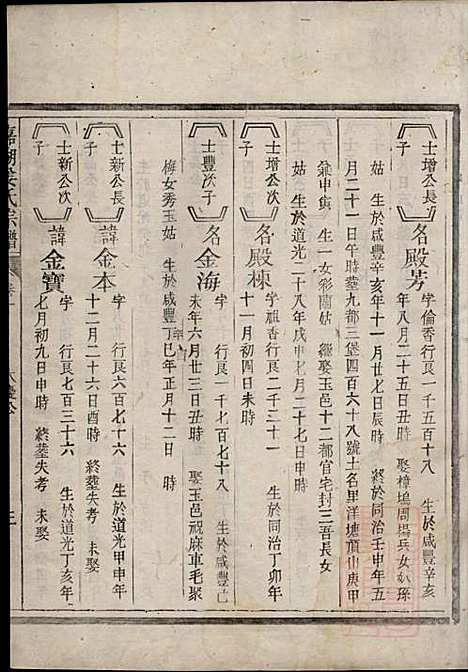 士增公長子
名殿芳
字倫香行艮一千五百十八 生於咸豐辛亥
年八月二十五日丑時 娶樟塢周揚兵女奴孫
姑 生於咸豐辛亥年十一月廿七日時 終於同治壬申年五
月二十一日午時塟九都三堡四百六十八號土名里洋塘頂山庚甲
兼申寅 生一女彩蘭姑 繼娶玉邑十二都官宅封三吾長女
姑 生於道光二十八年戊申七月二十七日申時
士增公次子
名殿棟
字祖香行艮二千三十一 生於同治丁卯年
十一月初四日未時
士豐次子
名金海
字 行艮一千七百七十八 生於咸豐己
未年六月廿三日丑時 娶玉邑祝麻車毛聚
梅女秀玉姑 生於咸豐丁巳年正月十二日 時
士新公長子
諱金本
字 行艮七百六十六 生於道光甲申年
十二月二十六日酉時 終塟失考 未娶
士新公次子
諱金寶
字 行艮七百三十六 生於道光丁亥年
七月初九日申時 終塟失考 未娶